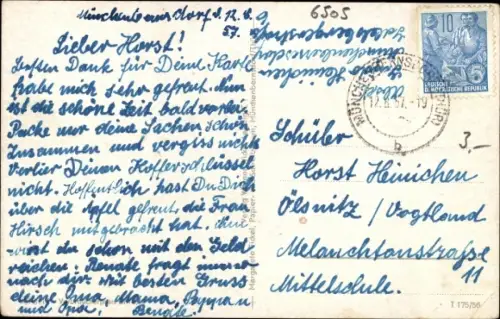 Münchenbernsdorf d. 12.8.
57.
6505
Lieber Horst!
Besten Dank für Deine Karte
habe mich sehr gefreut. Nun
ist die schöne Zeit bald vorbei
Packe nur deine Sachen schön
Zusammen und vergiss nicht
verlier Deinen Kofferschlüssel
nicht. Hoffentlich hast Du Dich
über die Äpfel gefreut, die Frau
Hirsch mitgebracht hat. Nun
wirst du schon mit den Geld
reichen. Renate fragt immer
nach dir. Mit besten Gruss
deine Oma, Mama, Pappa
und Opa,
Heinichen
Münchenbernsdorf
10
DEUTSCHE
3,-
b
Schüler
Horst Heinichen
Ölsnitz / Vogtland
Melanchtonstraße
11
Mittelschule.
T 175/56